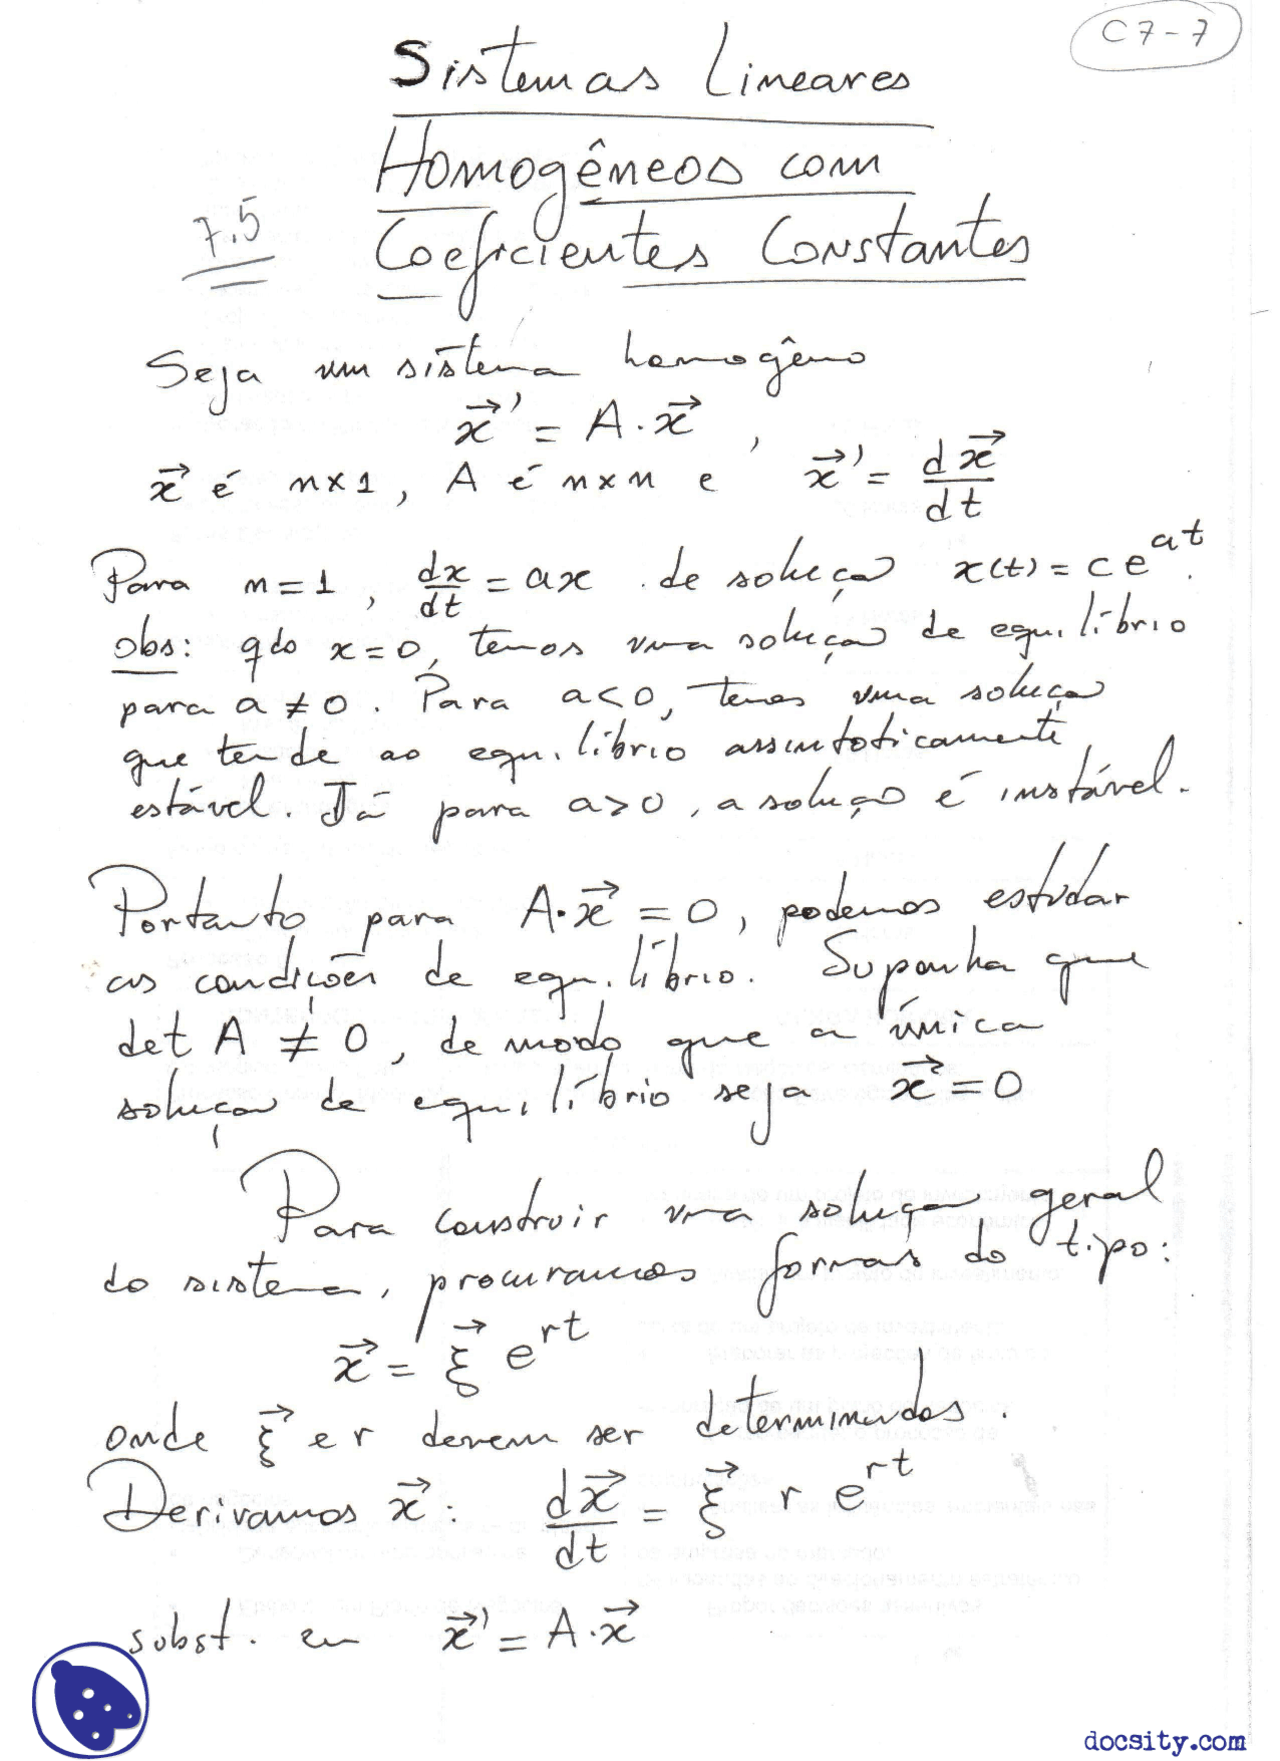 C7-7
Sistemas Lineares
Homogêneos com
7.5
Coeficientes Constantes
Seja um sistema homogêno
x⃗' = A · x⃗ ,
x⃗ é n×1, A é n×n e x⃗' = dx⃗/dt
Para n=1, dx/dt = ax . de solução x(t) = c e^{at}.
obs: qdo x=0, temos uma solução de equilíbrio
para a ≠ 0. Para a<0, temos uma solução
que tende ao equilíbrio assintoticamente
estável. Já para a>0, a solução é instável.
Portanto para A·x⃗ = 0, podemos estudar
as condições de equilíbrio. Suponha que
det A ≠ 0, de modo que a única
solução de equilíbrio seja x⃗ = 0
Para construir uma solução geral
do sistema, procuramos formas do tipo:
x⃗ = ξ⃗ e^{rt}
onde ξ⃗ e r devem ser determinados.
Derivamos x⃗ : dx⃗/dt = ξ⃗ r e^{rt}
subst. em x⃗' = A·x⃗
docsity.com